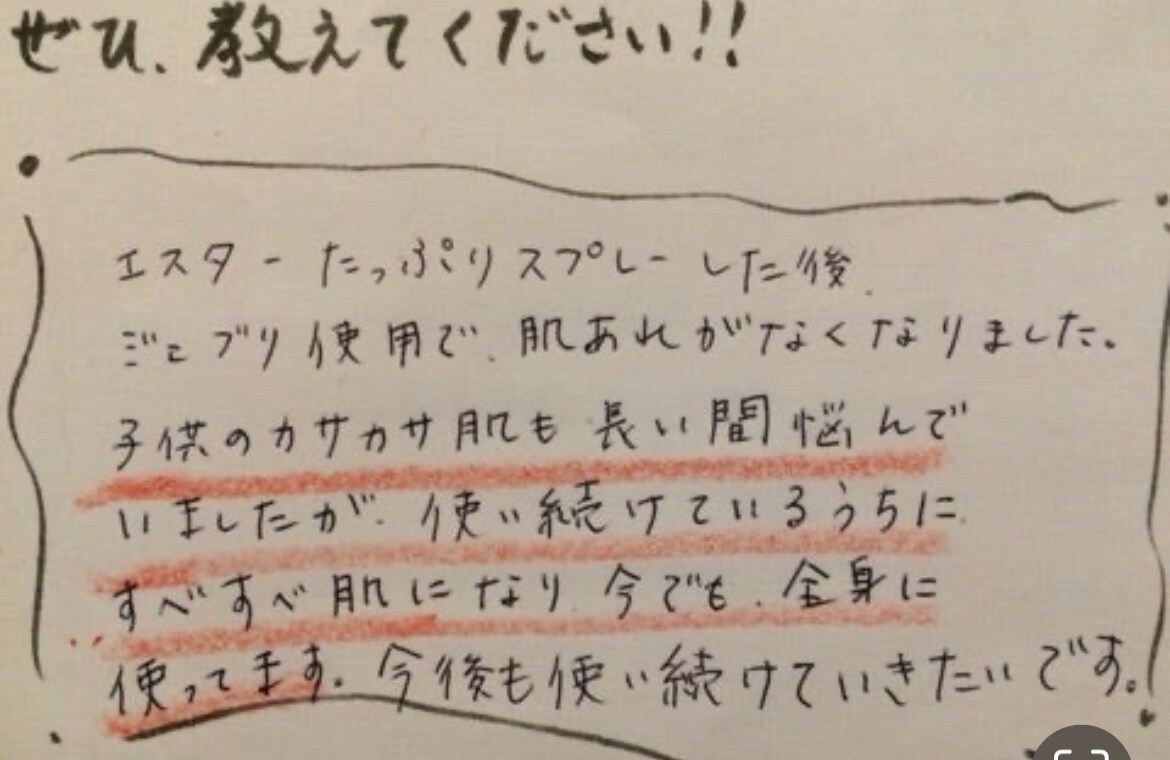 ぜひ、教えてください!!
エスターたっぷりスプレーした後、
ジェブリ使用で、肌あれがなくなりました。
子供のカサカサ肌も長い間悩んで
いましたが、使い続けているうちに、
すべすべ肌になり、今でも、全身に
使ってます。今後も使い続けていきたいです。